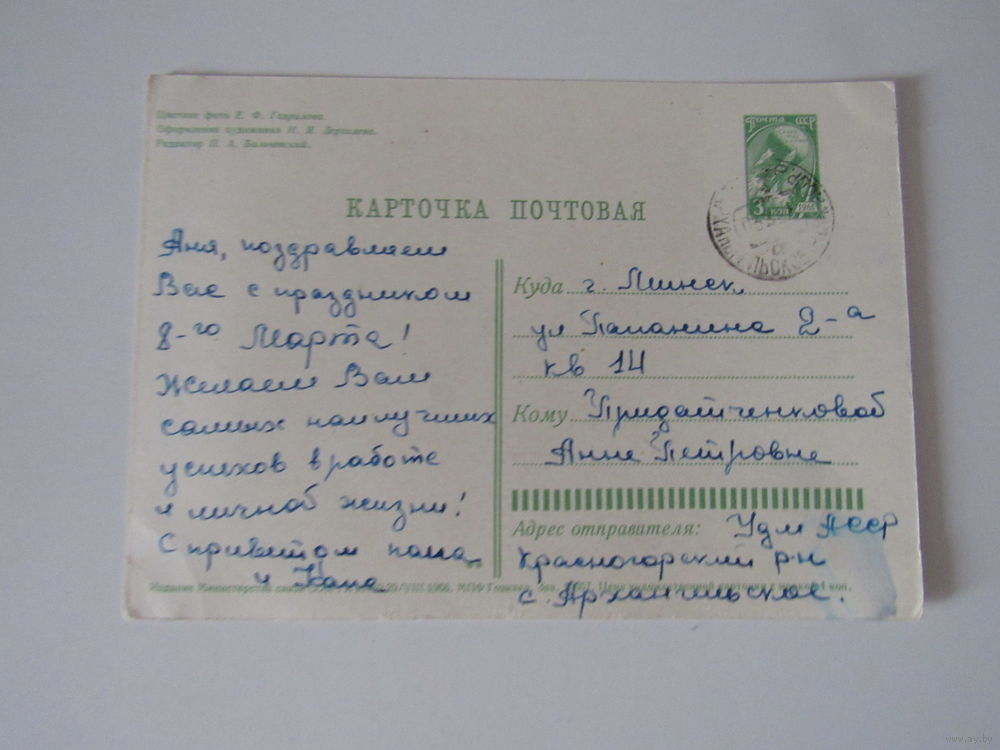 Цветное фото Е. Ф. Гаврилова.
Оформление художника И. Я. Дергилева.
Редактор П. А. Бальчевский.
Почта СССР
3 коп 1966
КАРТОЧКА ПОЧТОВАЯ
Аня, поздравляем
Вас с праздником
8-го Марта!
Желаем Вам
самых наилучших
успехов в работе
и личной жизни!
С приветом папа
и Капа
Куда г. Минск,
ул Папанина 2-а
кв 14
Кому Придатченковой
Анне Петровне
Адрес отправителя: Удм АССР
Красногорский р-н
с. Архангельское.
Издание Министерства связи 1966, коп.
www.ay.by